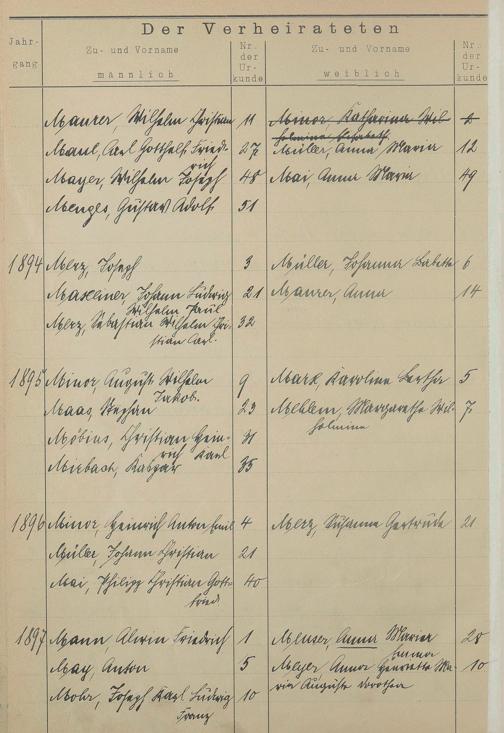 Der Verheirateten
Jahr-
gang
Zu- und Vorname
männlich
Nr.
der
Ur-
kunde
Zu- und Vorname
weiblich
Nr.
der
Ur-
kunde
Maurer, Wilhelm Christian 11 Minor, Katharina Wil-
helmine Elisabeth
Maul, Carl Gotthelf Fried-
rich 27 Müller, Anna Maria 12
Mayer, Wilhelm Joseph 48 Mai, Anna Maria 49
Menges, Gustav Adolf 51
1894 Merz, Joseph 3 Müller, Johanna Babette 6
Johann Ludwig 21 Maurer, Anna 14
Wilhelm Paul
Merz, Sebastian Wilhelm Chri- 32
stian Carl.
1895 Minor, August Wilhelm 9 Marx, Karoline Bertha 5
Jakob.
Maas, Stephan 23 Mehlem, Margaretha Wil- 7
helmine
Möbius, Christian Hein- 31
rich Karl
Mirbach, Kaspar 35
1896 Minor, Heinrich Anton Emil 4 Merz, Susanna Gertrude 21
Müller, Johann Christian 21
Mai, Philipp Christian Gott- 40
fried
1897 Mann, Alwin Friedrich 1 Menser, Anna Maria 28
May, Anton 5 Meyer, Anna Henriette Ma- 10
ria Auguste Dorothea
Mohr, Joseph Karl Ludwig 10
Franz